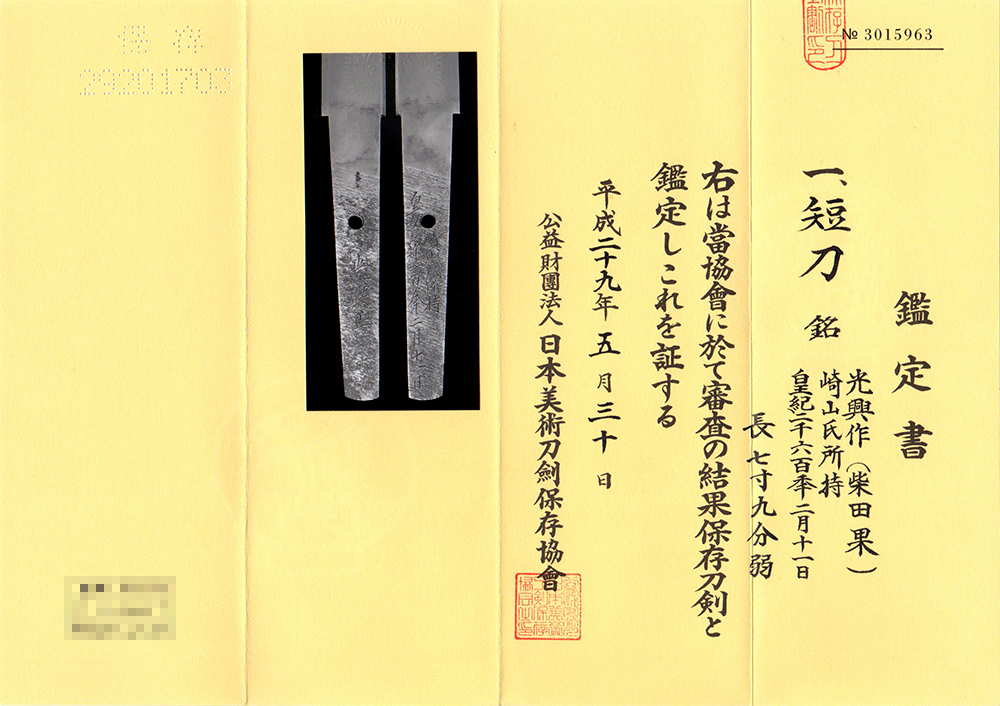 № 3015963
鑑定書
一、短刀 銘
光興作（柴田果）
崎山氏所持
皇紀二千六百年二月十一日
長七寸九分弱
右は當協會に於て審査の結果保存刀剣と
鑑定しこれを証する
平成二十九年五月三十日
公益財團法人日本美術刀劍保存協會
保存
29201703